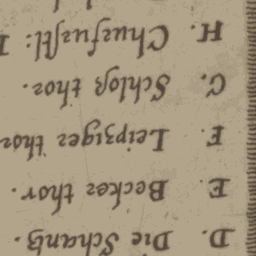 D. Die Schantz.
E. Becker thor.
F. Leipziger thor
G. Schloß thor.
H. Churfurstl: